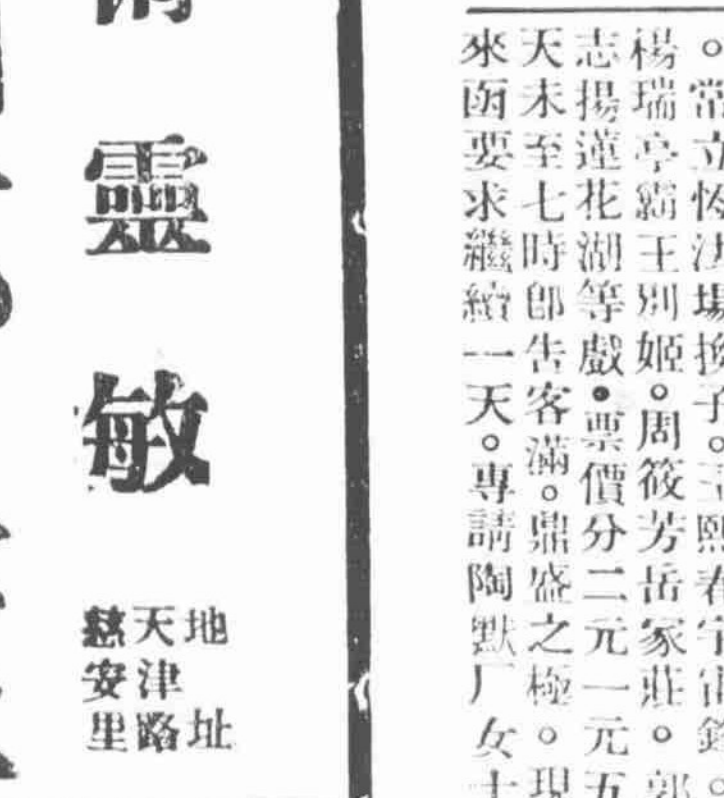 。常立恆法場換子。王熙春宇宙鋒。
楊瑞亭霸王別姬。周筱芳岳家莊。郭
志揚蓮花湖等戲•票價分二元一元五
天未至七時卽告客滿。鼎盛之極。現
來函要求繼續一天。專請陶默厂女士
靈敏
地址
天津路
慈安里